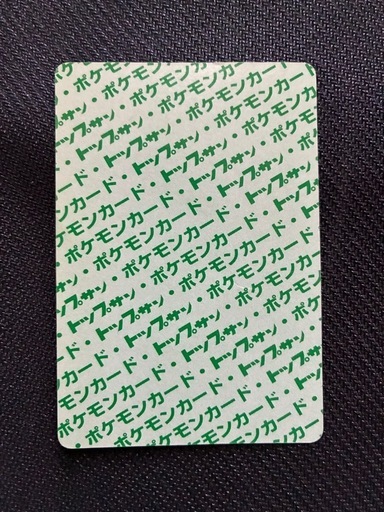 プサン・ポケモンカード
カード・トップサン・ポケモンカード
ポケモンカード・トップサン・ポケモン
ポケモンカード・トップサン・
・ポケモンカード・トップサン
トップサン・ポケモンカード・
・トップサン・ポケモンカード
カード・トップサン・ポケモンカード
ポケモンカード・トップサン・ポケモン
ポケモンカード・トップサン・
・ポケモンカード・トップサン